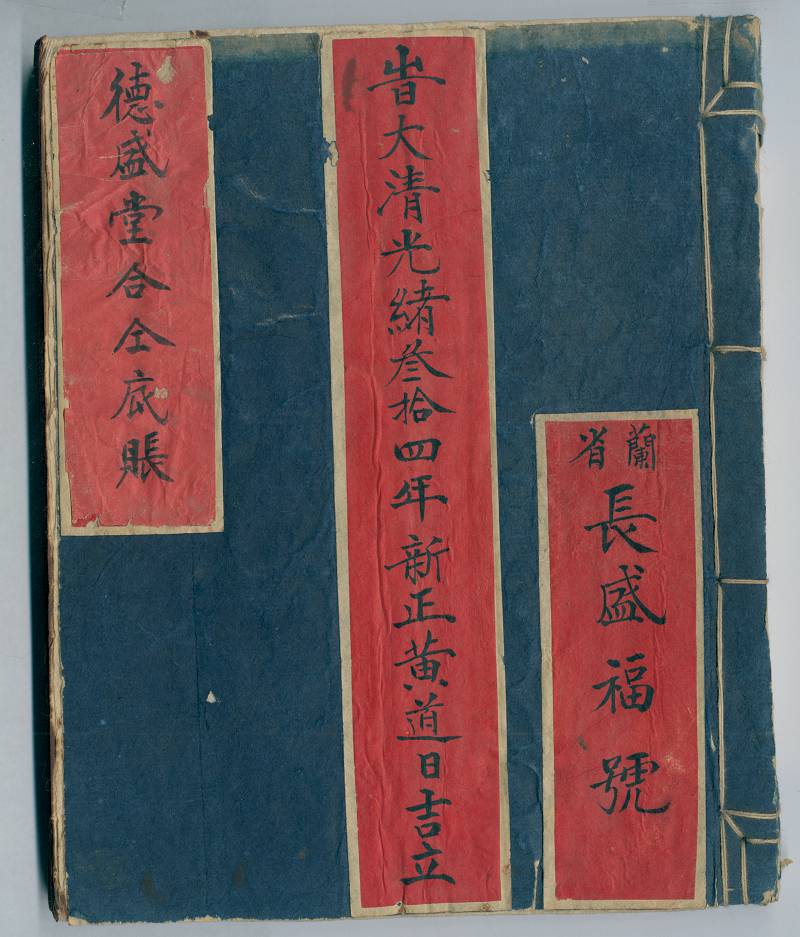 蘭省長盛福號
旹大清光緒叁拾四年新正黄道日吉立
德盛堂合仝底賬